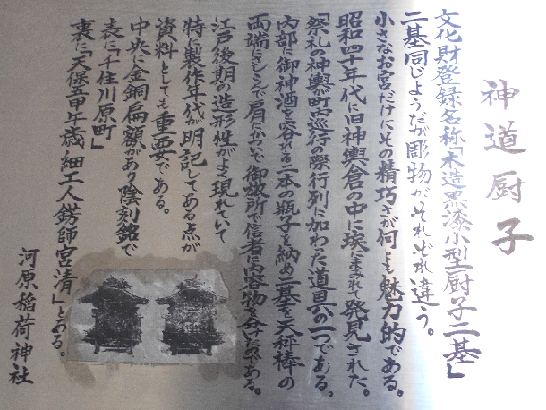 神道厨子
文化財登録名称「木造黒漆小型厨子二基」
二基同じようだが彫物がそれぞれ違う。
小さなお宮だけにその精巧さが何とも魅力的である。
昭和四十年代に旧神輿倉の中に埃にまみれて発見された。
「祭礼の神輿町内巡行の際行列に加わった道具の一つである。
内部に御神酒を容れる二本の瓶子を納め二基を天秤棒の
両端にさげて肩にかつぎ御旅所で信者に内容物を分けたのである。
江戸後期の造形性がよく現れていて
特に製作年代が明記してある点が
資料としても重要である。
中央に金銅扁額があり陰刻銘で
表に「千住川原町」
裏に「天保五甲午歳・細工人錺師宮清」とある。
河原稲荷神社